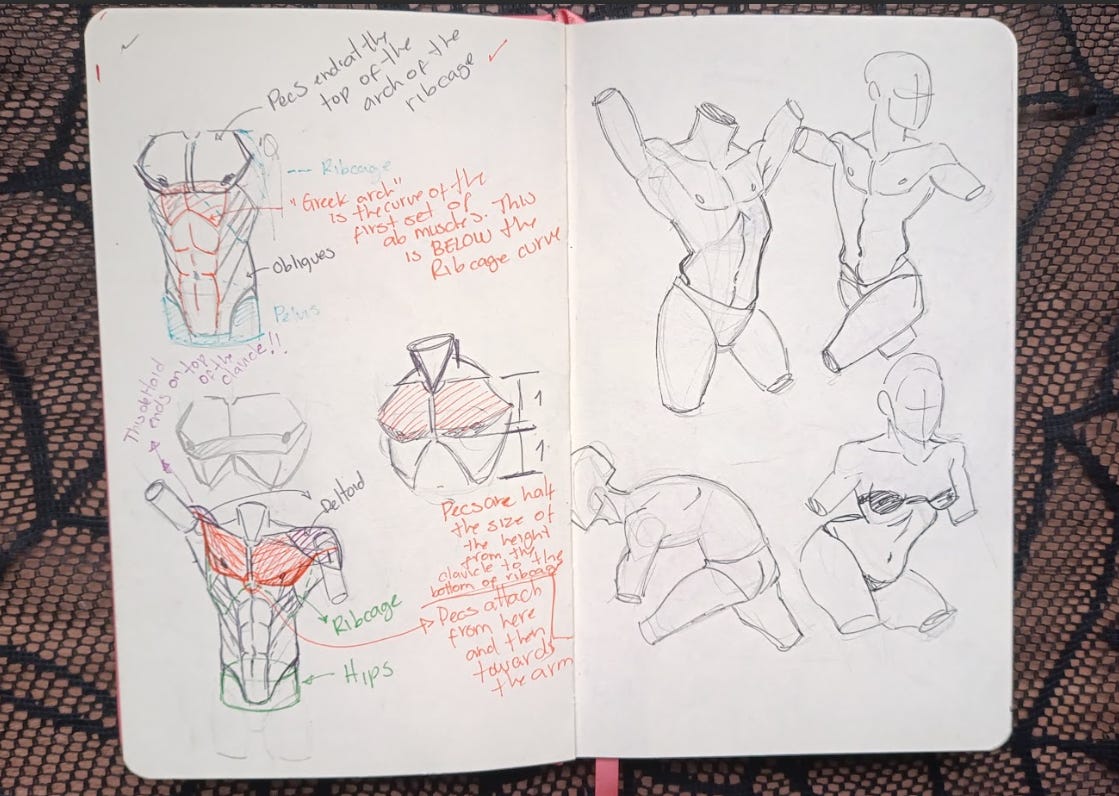 Pecs end at the
top of the
arch of the
ribcage
Ribcage
"Greek arch"
is the curve of the
first set of
ab muscles. This
is BELOW the
Ribcage curve
Obliques
Pelvis
This deltoid
ends on top
of the
clavicle!!
1
1
Deltoid
Pecs are half
the size of
the height
from the
clavicle to the
bottom of ribcage
Ribcage
Pecs attach
from here
and then
towards
the arm
Hips